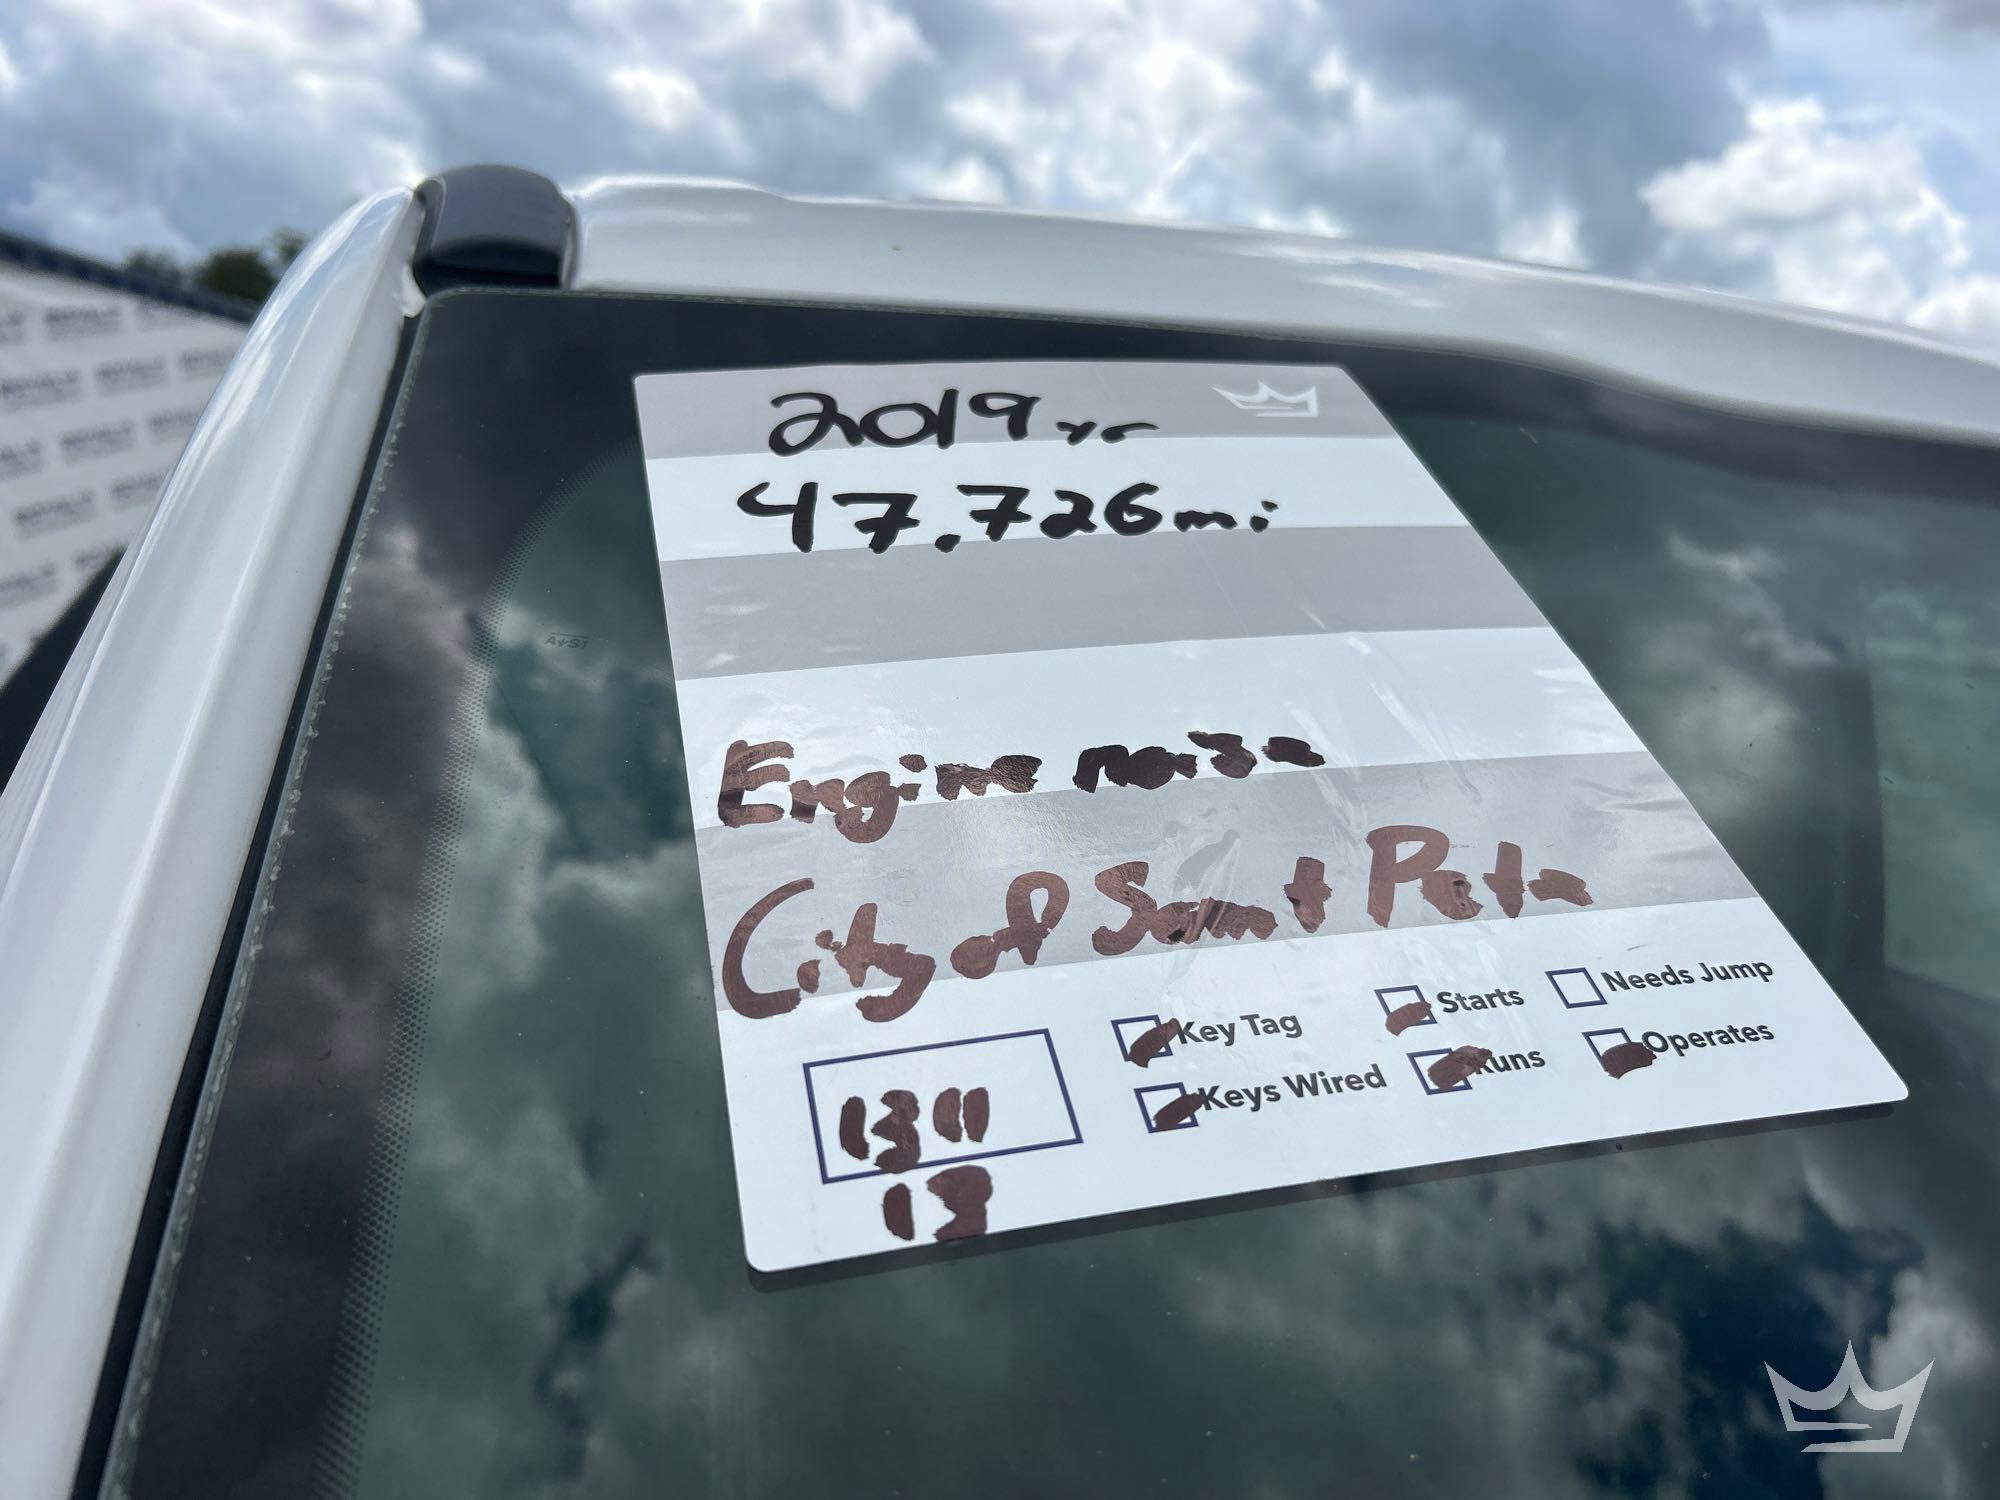 2019 yr
47.726 mi
Engine noise
City of Saint Pete
Key Tag
Starts
Needs Jump
Keys Wired
Runs
Operates
1311
13